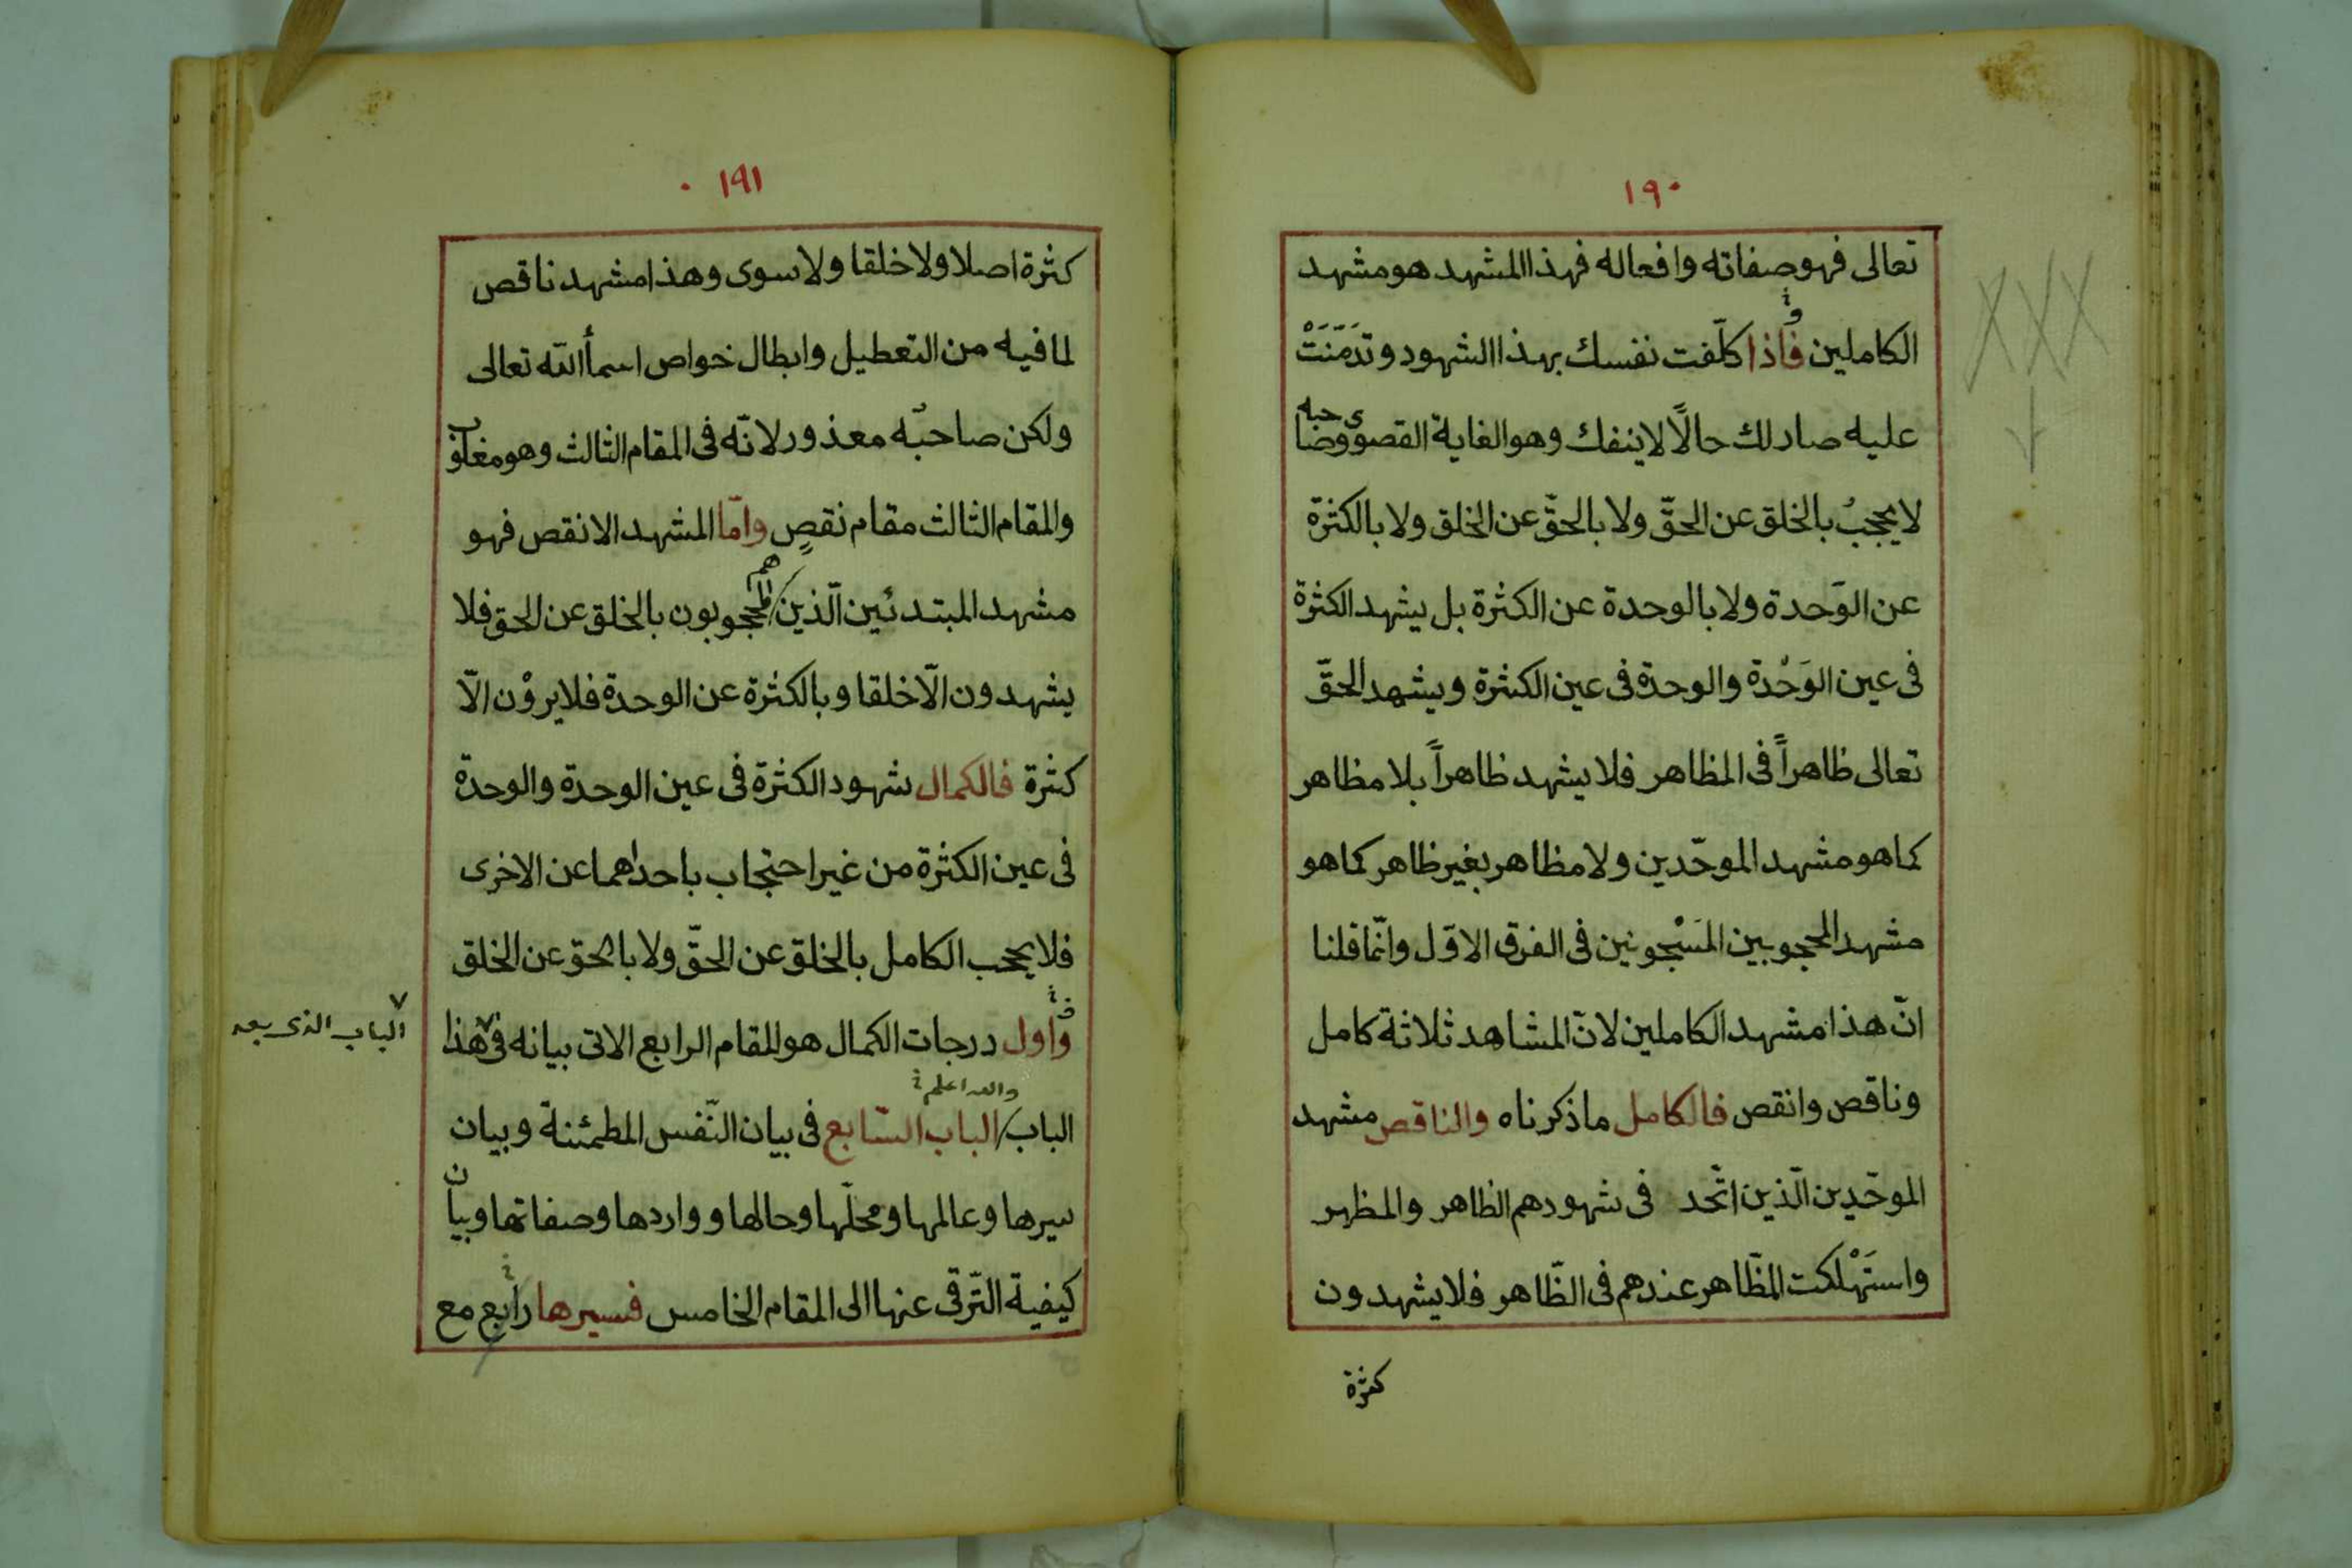 ١٩٠
تعالى فهو صفاته وافعاله فهذا المشهد هو مشهد
الكاملين فاذا كلّفت نفسك بهذا الشهود وتدمّنَتْ
عليه صار لك حالًا لا ينفك وهو الغاية القصوى وصاحبه
لا يحجبُ بالخلق عن الحقّ ولا بالحقّ عن الخلق ولا بالكثرة
عن الوَحدة ولا بالوحدة عن الكثرة بل يشهد الكثرة
فى عين الوَحْدة والوحدة فى عين الكثرة ويشهد الحقّ
تعالى ظاهراً فى المظاهر فلا يشهد ظاهراً بلا مظاهر
كما هو مشهد الموحّدين ولا مظاهر بغير ظاهر كما هو
مشهد المحجوبين المَسْجونين فى الفرق الاوّل وانّما قلنا
انّ هذا مشهد الكاملين لانّ المشاهد ثلاثة كامل
وناقص وانقص فالكامل ما ذكرناه والناقص مشهد
الموحّدين الّذين اتّحد فى شهودهم الظاهر والمظهر
واستَهْلكت المظّاهر عندهم فى الظّاهر فلا يشهدون
كثرة
١٩١
كثرة اصلا ولا خلقا ولا سوى وهذا مشهد ناقص
لما فيه من التعطيل وابطال خواص اسمأ الله تعالى
ولكن صاحبه معذور لانّه فى المقام الثالث وهو مغلوب
والمقام الثالث مقام نقصٍ وامّا المشهد الانقص فهو
مشهد المبتدئين الّذين هم المحجوبون بالخلق عن الحق فلا
يشهدون الّا خلقا وبالكثرة عن الوحدة فلا يروْن الّا
كثرة فالكمال شهود الكثرة فى عين الوحدة والوحدة
فى عين الكثرة من غير احتجاب باحداهما عن الاخرى
فلا يحجب الكامل بالخلق عن الحقّ ولا بالحق عن الخلق
واول درجات الكمال هو المقام الرابع الاتى بيانه فى هذا
الباب الذى بعد
والله اعلم
الباب الباب السّابع فى بيان النّفس المطمئنة وبيان
سيرها وعالمها ومحلّها وحالها وواردها وصفاتها وبيان
كيفية التّرقى عنها الى المقام الخامس فسيرها رابع مع